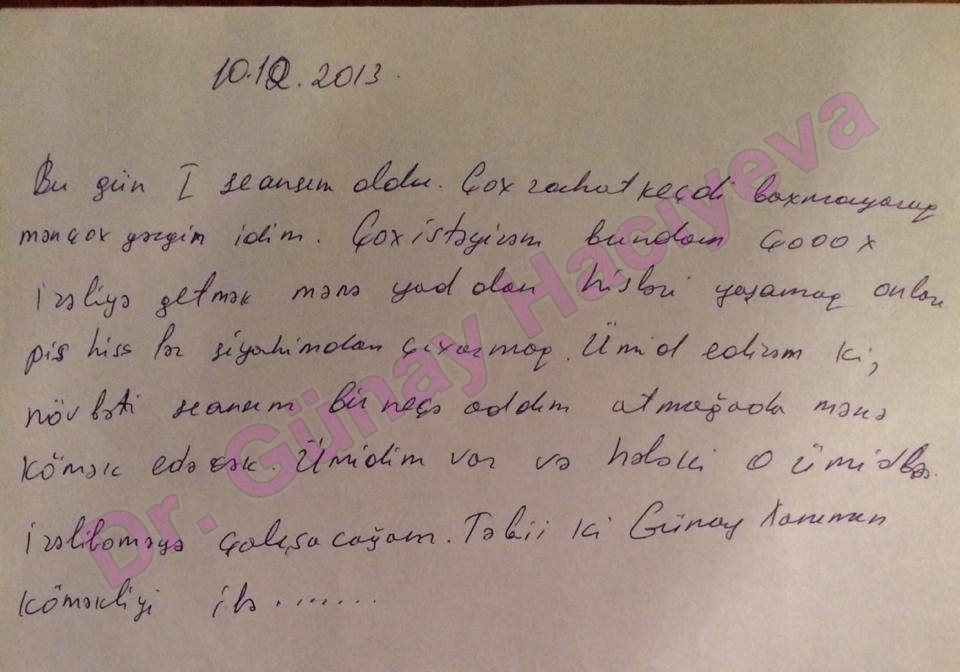 10.12.2013.
Bu gün I seansım oldu. Çox rahat keçdi baxmayaraq
mən çox gərgin idim. Çox istəyirəm bundan çooox
irəliyə getmək mənə yad olan hisləri yaşamaq onları
pis hiss lər siyahımdan çıxarmaq. Ümid edirəm ki,
növbəti seansım bir neçə addım atmağada mənə
kömək edəcək. Ümidim var və hələki o ümidlə
irəliləməyə çalışacağam. Təbii ki Günay xanımın
köməkliyi ilə.......
Dr. Günay Hacıyeva